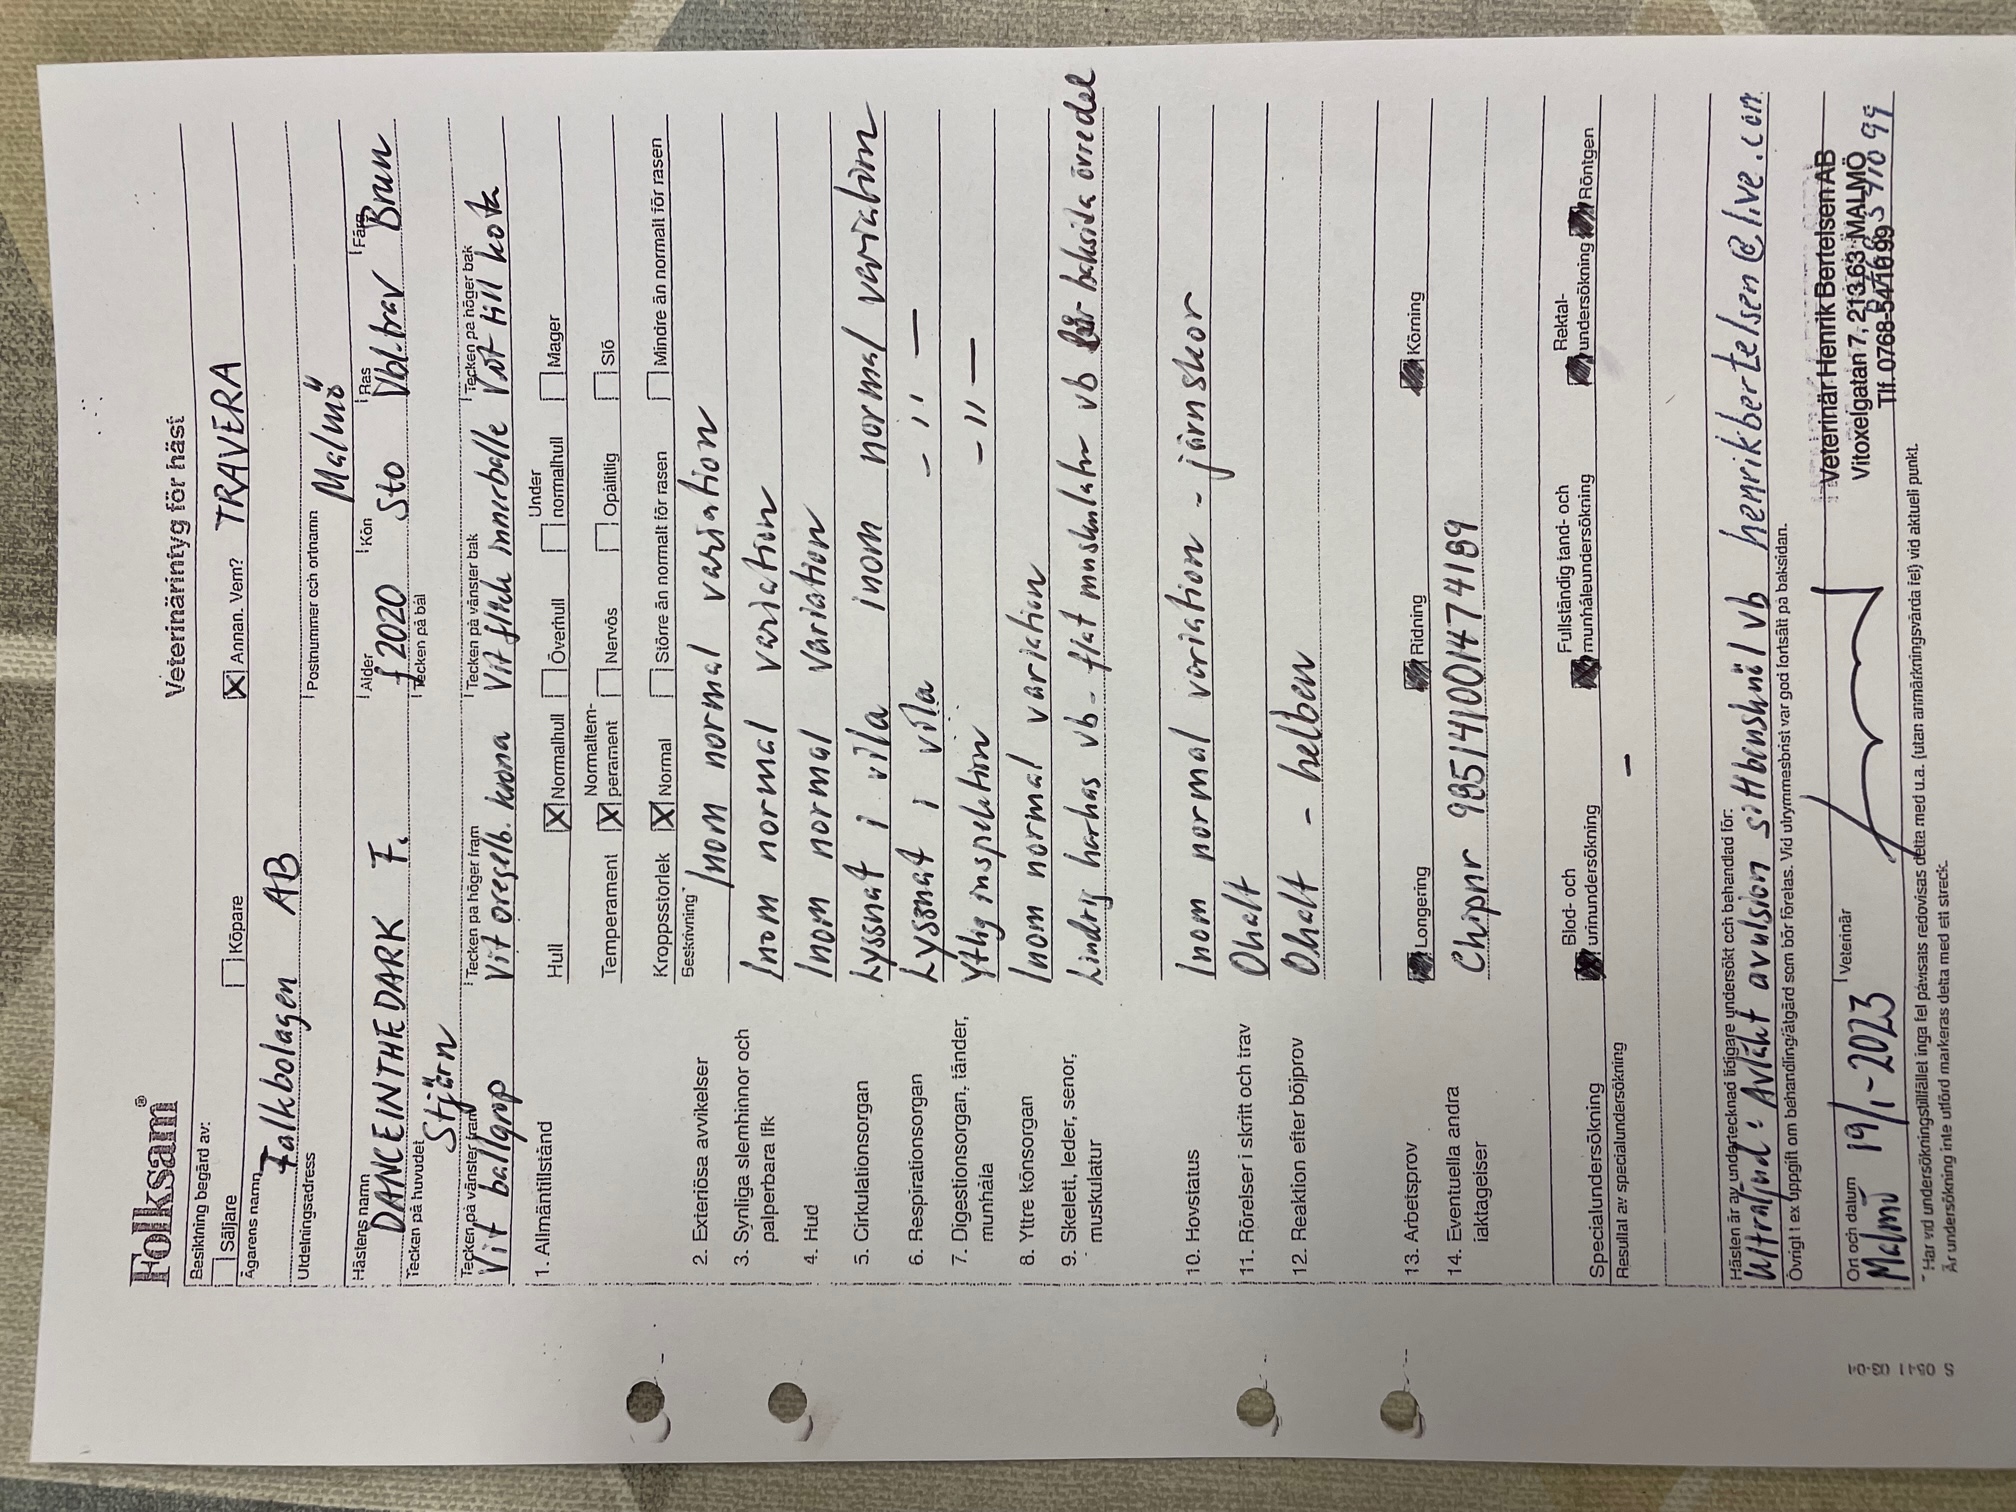 Folksam®
Veterinärintyg för häst
Besiktning begärd av:
☐ Säljare ☐ Köpare ☒ Annan. Vem? TRAVERA
Ägarens namn
Falkbolagen AB
Utdelningsadress Postnummer och ortnamn
Malmö
Hästens namn Ålder Kön Ras Färg
DANCEINTHEDARK F. f 2020 Sto Vbl.trav Brun
Tecken på huvudet Tecken på bål
Stjärn
Tecken på vänster fram Tecken på höger fram Tecken på vänster bak Tecken på höger bak
Vit ballgrop Vit oregelb. krona Vit fläck innerballe Vit till kota
1. Allmäntillstånd Hull ☒ Normalhull ☐ Överhull ☐ Under normalhull ☐ Mager
Temperament ☒ Normaltemperament ☐ Nervös ☐ Opålitlig ☐ Slö
Kroppsstorlek ☒ Normal ☐ Större än normalt för rasen ☐ Mindre än normalt för rasen
Beskrivning*
2. Exteriösa avvikelser Inom normal variation
3. Synliga slemhinnor och palperbara lfk Inom normal variation
4. Hud Inom normal variation
5. Cirkulationsorgan Lyssnat i vila inom normal variation
6. Respirationsorgan Lyssnat i vila - '' —
7. Digestionsorgan, tänder, munhåla Ytlig inspektion - '' —
8. Yttre könsorgan Inom normal variation
9. Skelett, leder, senor, muskulatur Lindrig harhas vb - flat muskulatur vb baksida övredel
10. Hovstatus Inom normal variation - järnskor
11. Rörelser i skritt och trav Ohalt
12. Reaktion efter böjprov Ohalt - helben
13. Arbetsprov Longering Ridning Körning
14. Eventuella andra iakttagelser Chipnr 985141001474189
Specialundersökning Blod- och urinundersökning Fullständig tand- och munhåleundersökning Rektalundersökning Röntgen
Resultat av specialundersökning –
Hästen är av undertecknad tidigare undersökt och behandlad för:
Ultraljud: Avläkt avulsion sittbensknöl vb henrikbertelsen@live.com
Övrigt t ex uppgift om behandling/åtgärd som bör förelas. Vid utrymmesbrist var god fortsätt på baksidan.
Ort och datum Veterinär
Malmö 19/1-2023
Veterinär Henrik Bertelsen AB
Vitoxelgatan 7, 213 63 MALMÖ
Tlf. 0768-541099
* Har vid undersökningstillfället inga fel påvisats redovisas detta med u.a. (utan anmärkningsvärda fel) vid aktuell punkt.
Är undersökning inte utförd markeras detta med ett streck.